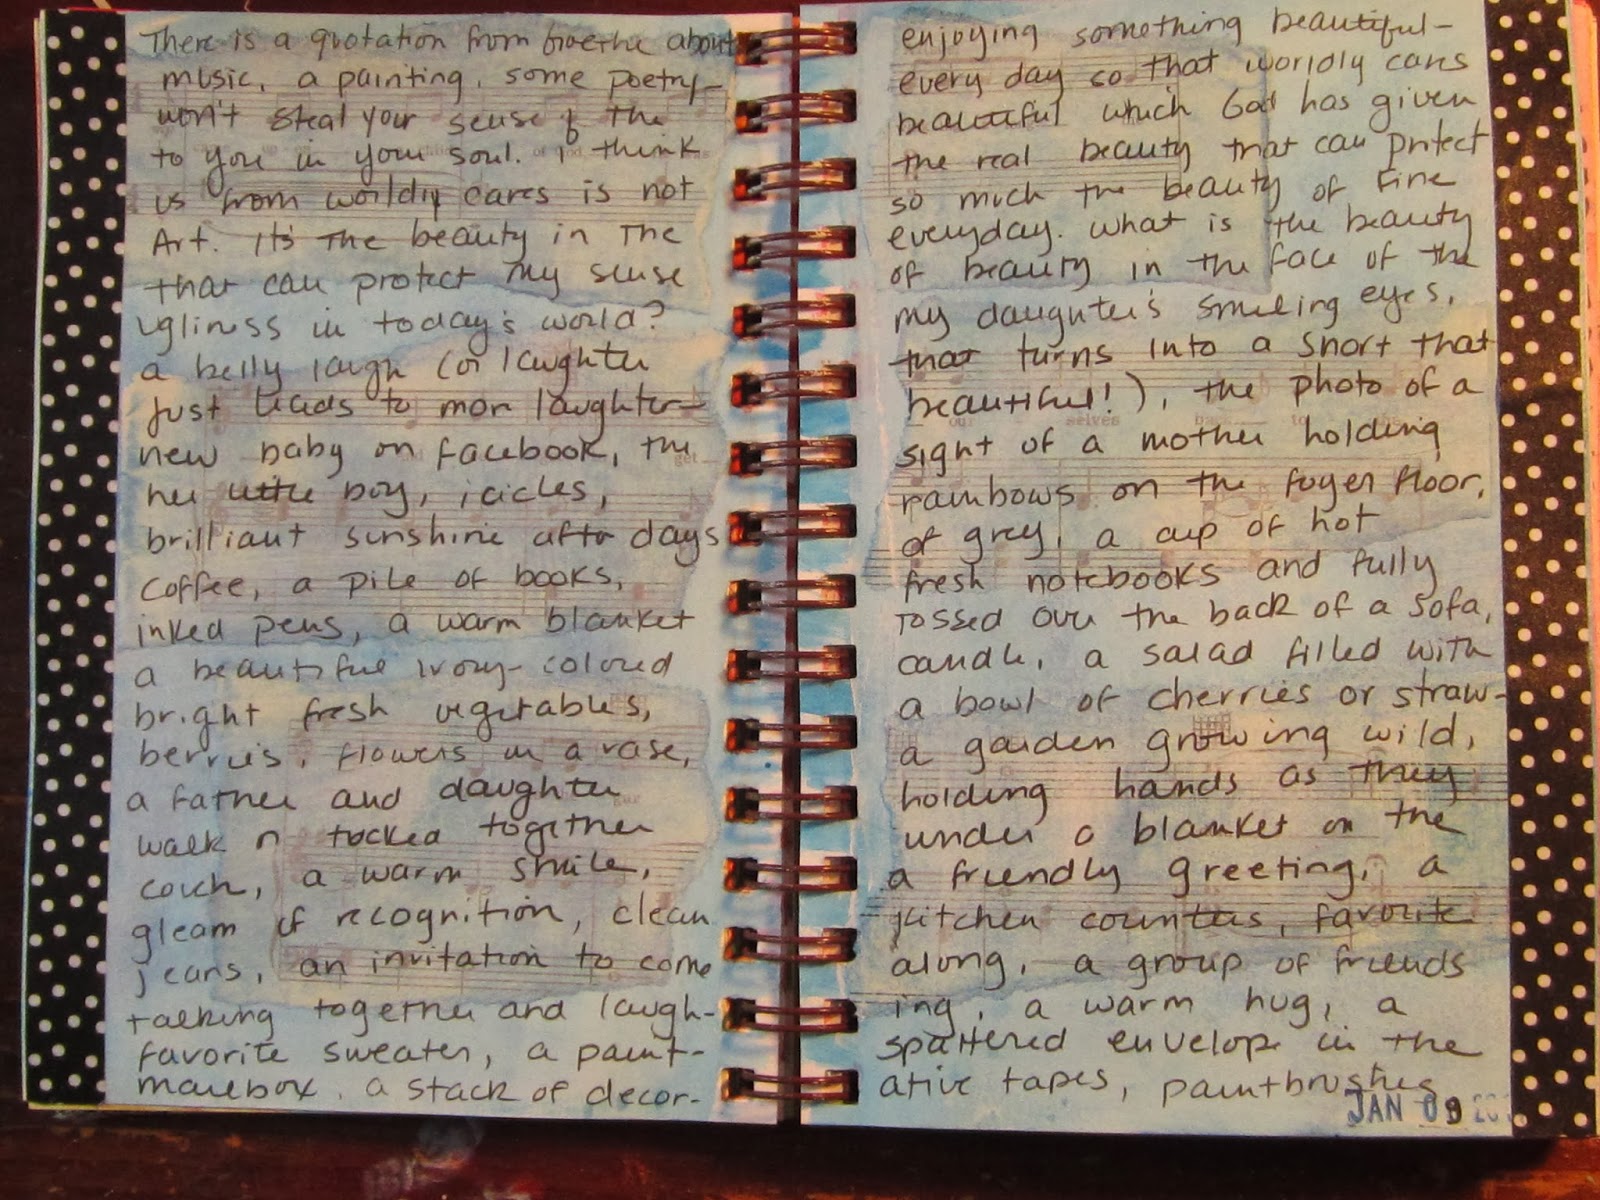 There is a quotation from Goethe about enjoying something beautiful—
music, a painting, some poetry— every day so that worldly cares
won't steal your sense of the beautiful which God has given
to you in your soul. I think the real beauty that can protect
us from worldly cares is not so much the beauty of Fine
Art. It's the beauty in the everyday. What is the beauty
that can protect my sense of beauty in the face of the
ugliness in today's world? my daughter's smiling eyes,
a belly laugh (or laughter that turns into a snort that
just leads to more laughter— beautiful!), the photo of a
new baby on facebook, the sight of a mother holding
her little boy, icicles, rainbows on the foyer floor,
brilliant sunshine after days of grey, a cup of hot
coffee, a pile of books, fresh notebooks and fully
inked pens, a warm blanket tossed over the back of a sofa,
a beautiful ivory-colored candle, a salad filled with
bright fresh vegetables, a bowl of cherries or straw-
berries, flowers in a vase, a garden growing wild,
a father and daughter holding hands as they
walk or tucked together under a blanket on the
couch, a warm smile, a friendly greeting, a
gleam of recognition, clean kitchen counters, favorite
jeans, an invitation to come along, a group of friends
talking together and laugh- ing, a warm hug, a
favorite sweater, a paint- spattered envelope in the
mailbox, a stack of decor- ative tapes, paintbrushes
JAN 09